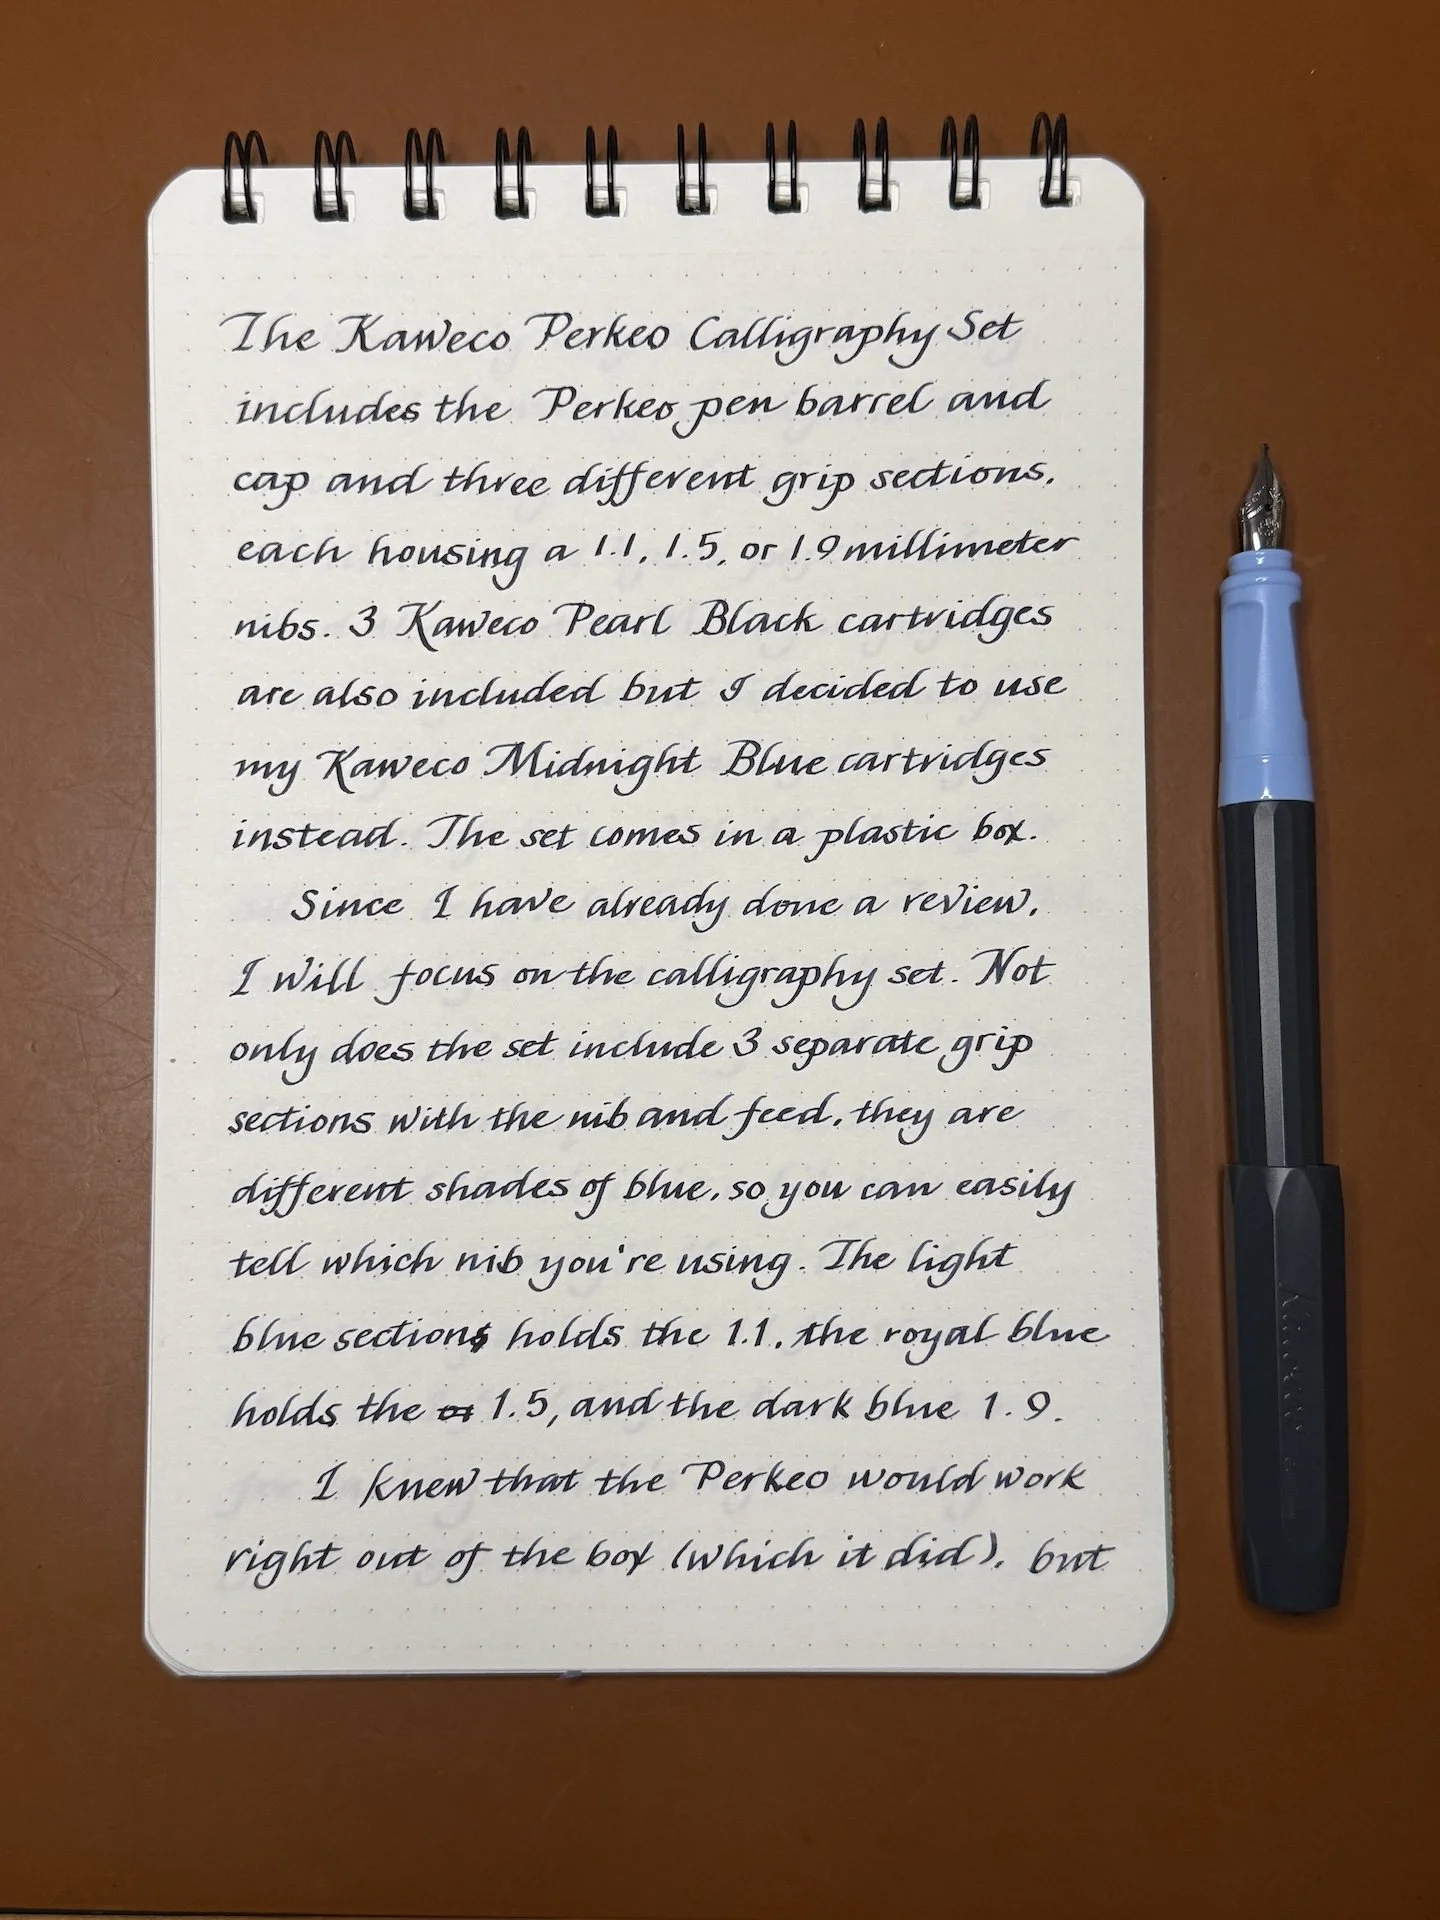 The Kaweco Perkeo Calligraphy Set
includes the Perkeo pen barrel and
cap and three different grip sections,
each housing a 1.1, 1.5, or 1.9 millimeter
nibs. 3 Kaweco Pearl Black cartridges
are also included but I decided to use
my Kaweco Midnight Blue cartridges
instead. The set comes in a plastic box.
Since I have already done a review,
I will focus on the calligraphy set. Not
only does the set include 3 separate grip
sections with the nib and feed, they are
different shades of blue, so you can easily
tell which nib you're using. The light
blue section holds the 1.1, the royal blue
holds the 1.5, and the dark blue 1.9.
I knew that the Perkeo would work
right out of the box (which it did), but